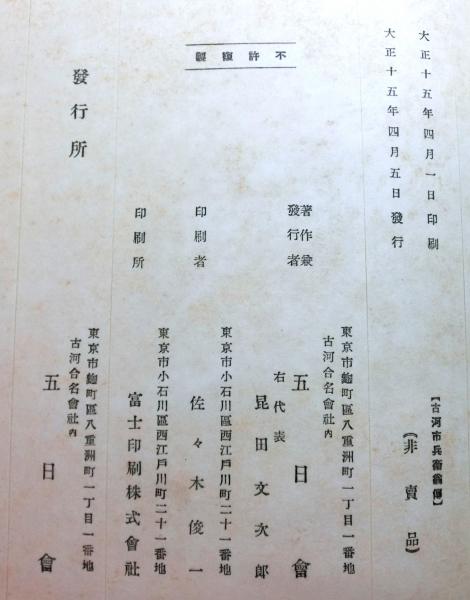 大正十五年四月一日印刷
大正十五年四月五日發行
【古河市兵衞翁傳】
(非賣品)
不許複製
著作兼
發行者
東京市麴町區八重洲町一丁目一番地
古河合名會社内
五日會
右代表
昆田文次郎
印刷者
東京市小石川區西江戸川町二十一番地
佐々木俊一
印刷所
東京市小石川區西江戸川町二十一番地
富士印刷株式會社
發行所
東京市麴町區八重洲町一丁目一番地
古河合名會社内
五日會